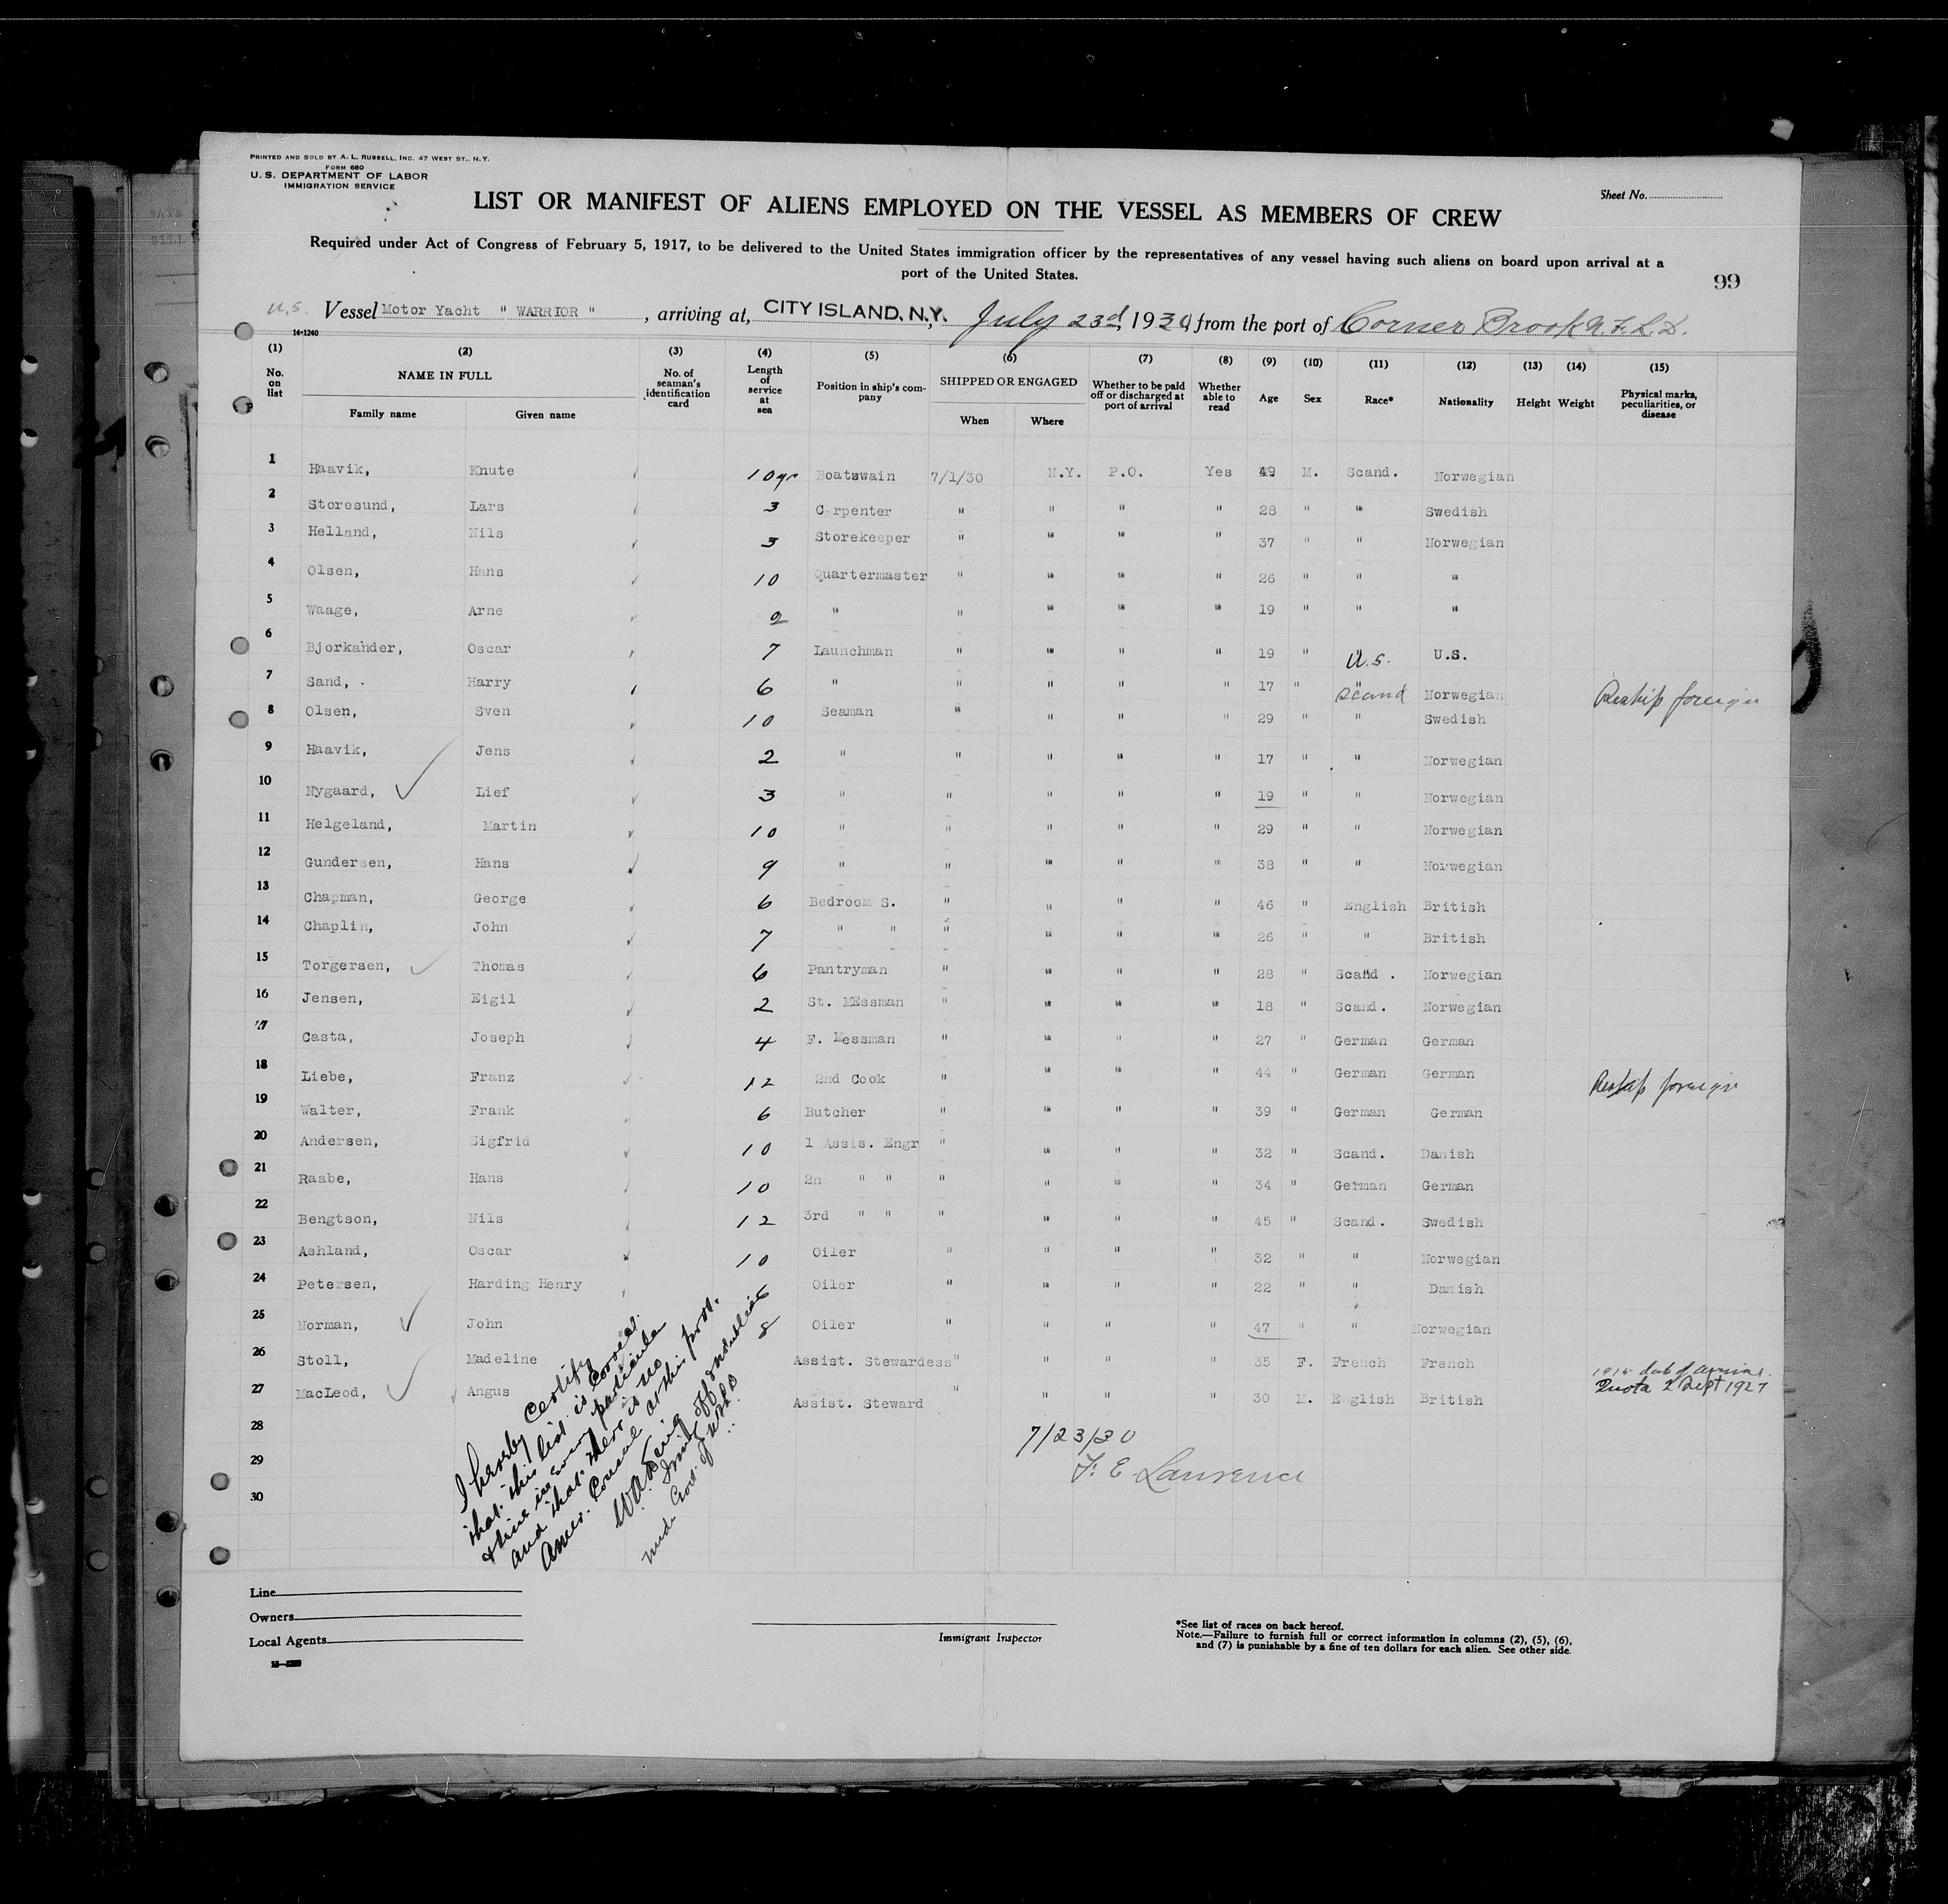 PRINTED AND SOLD BY A. L. RUSSELL, INC. 47 WEST ST., N. Y.
FORM 680
U. S. DEPARTMENT OF LABOR
IMMIGRATION SERVICE
Sheet No.
LIST OR MANIFEST OF ALIENS EMPLOYED ON THE VESSEL AS MEMBERS OF CREW
Required under Act of Congress of February 5, 1917, to be delivered to the United States immigration officer by the representatives of any vessel having such aliens on board upon arrival at a
port of the United States.
99
U.S. Vessel Motor Yacht " WARRIOR " , arriving at, CITY ISLAND, N.Y. July 23d, 1930, from the port of Corner Brook N.F.L.D.
14-1240
(1) (2) (3) (4) (5) (6) (7) (8) (9) (10) (11) (12) (13) (14) (15)
No. on list NAME IN FULL No. of seaman's identification card Length of service at sea Position in ship's company SHIPPED OR ENGAGED Whether to be paid off or discharged at port of arrival Whether able to read Age Sex Race* Nationality Height Weight Physical marks, peculiarities, or disease
Family name Given name When Where
1 Haavik, Knute 10 yr Boatswain 7/1/30 N.Y. P.O. Yes 49 M. Scand. Norwegian
2 Storesund, Lars 3 Carpenter " " " " 28 " " Swedish
3 Helland, Nils 3 Storekeeper " " " " 37 " " Norwegian
4 Olsen, Hans 10 Quartermaster " " " " 26 " " "
5 Waage, Arne 2 " " " " " 19 " " "
6 Bjorkander, Oscar 7 Launchman " " " " 19 " U.S. U.S.
7 Sand, Harry 6 " " " " " 17 " Scand Norwegian Reship foreign
8 Olsen, Sven 10 Seaman " " " " 29 " " Swedish
9 Haavik, Jens 2 " " " " " 17 " " Norwegian
10 Nygaard, Lief 3 " " " " " 19 " " Norwegian
11 Helgeland, Martin 10 " " " " " 29 " " Norwegian
12 Gundersen, Hans 9 " " " " " 38 " " Norwegian
13 Chapman, George 6 Bedroom S. " " " " 46 " English British
14 Chaplin, John 7 " " " " " " 26 " " British
15 Torgersen, Thomas 6 Pantryman " " " " 28 " Scand . Norwegian
16 Jensen, Eigil 2 St. MEssman " " " " 18 " Scand. Norwegian
17 Casta, Joseph 4 F. Messman " " " " 27 " German German
18 Liebe, Franz 12 2nd Cook " " " " 44 " German German Reship foreign
19 Walter, Frank 6 Butcher " " " " 39 " German German
20 Andersen, Sigfrid 10 1 Assis. Engr " " " " 32 " Scand. Danish
21 Raabe, Hans 10 2n " " " " " " 34 " German German
22 Bengtson, Nils 12 3rd " " " " " " 45 " Scand. Swedish
23 Ashland, Oscar 10 Oiler " " " " 32 " " Norwegian
24 Petersen, Harding Henry 6 Oiler " " " " 22 " " Danish
25 Norman, John 8 Oiler " " " " 47 " " Norwegian
26 Stoll, Madeline Assist. Stewardess " " " " 35 F. French French
27 MacLeod, Angus Assist. Steward " " " " 30 M. English British
of arrival.
Quota 2 Sept 1927
28
29
30
7/23/30
F. E. Lawrence
I hereby certify
that this list is correct
& true in every particular
and that there is no
Amer. Consul at this port.
Line
Owners
Local Agents
Immigrant Inspector
*See list of races on back hereof.
Note.—Failure to furnish full or correct information in columns (2), (5), (6),
and (7) is punishable by a fine of ten dollars for each alien. See other side.